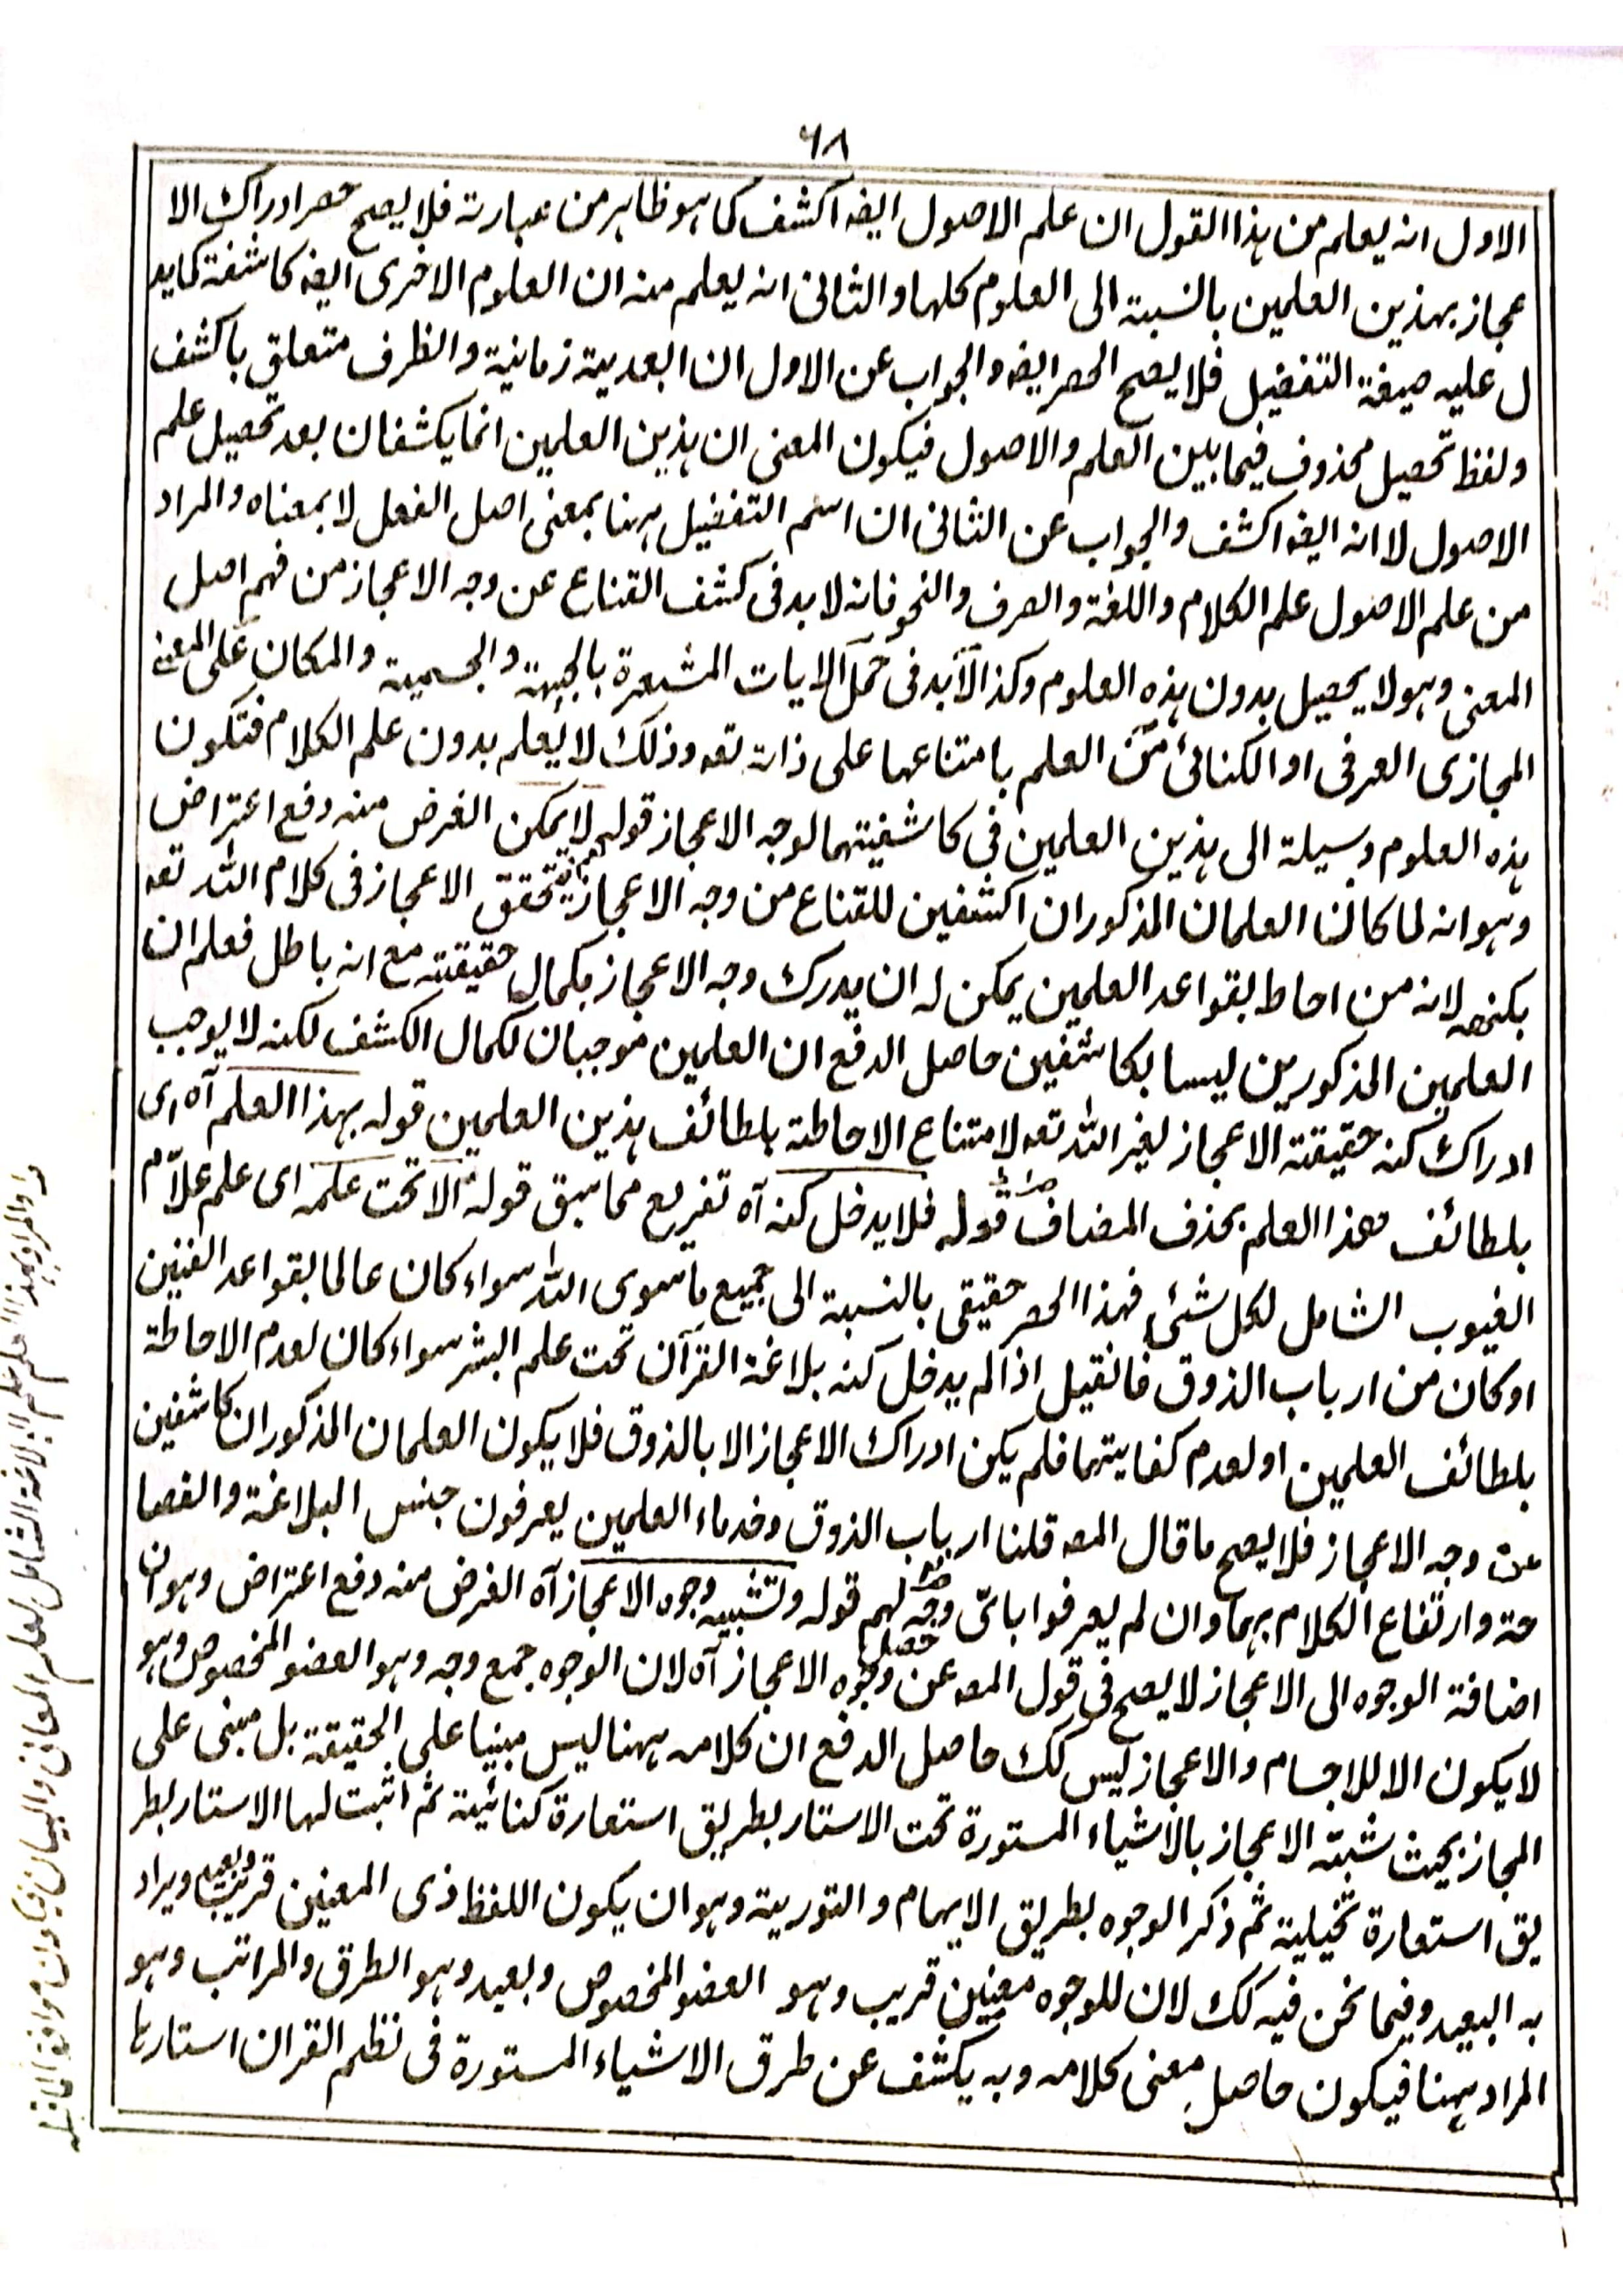 ٦٨
الاول انه يعلم من هذا القول ان علم الاصول ايضه اكشف كما هو ظاهر من عبارته فلا يصح حصر ادراك الا
عجاز بهذين العلمين بالنسبة الى العلوم كلها والثانى انه يعلم منه ان العلوم الاخرى ايضه كاشفة كما يد
ل عليه صيغة التفضيل فلا يصح الحصر ايضه والجواب عن الاول ان البعدية زمانية والظرف متعلق باكشف
ولفظ تحصيل محذوف فيما بين العلم والاصول فيكون المعنى ان هذين العلمين انما يكشفان بعد تحصيل علم
الاصول لا انه ايضه اكشف والجواب عن الثانى ان اسم التفضيل ههنا بمعنى اصل الفعل لا بمعناه والمراد
من علم الاصول علم الكلام واللغة والصرف والنحو فانه لا بد فى كشف القناع عن وجه الاعجاز من فهم اصل
المعنى وهو لا يحصل بدون هذه العلوم وكذا لا بد فى حمل الايات المشعرة بالجهة والجسمية والمكان على المعنى
المجازى العرفى او الكنائى من العلم بامتناعها على ذاته تعه وذلك لا يعلم بدون علم الكلام فتكون
هذه العلوم وسيلة الى هذين العلمين فى كاشفيتهما لوجه الاعجاز قوله لا يمكن الغرض منه دفع اعتراض
وهو انه لما كان العلمان المذكوران اكشفين للقناع من وجه الاعجاز تحقق الاعجاز فى كلام الله تعه
بكنهه لانه من احاط بقواعد العلمين يمكن له ان يدرك وجه الاعجاز بكمال حقيقته مع انه باطل فعلم ان
العلمين المذكورين ليسا بكاشفين حاصل الدفع ان العلمين موجبان لكمال الكشف لكنه لا يوجب
ادراك كنه حقيقة الاعجاز لغير الله تعه لامتناع الاحاطة بلطائف هذين العلمين قوله بهذا العلم آه اى
بلطائف هذا العلم بحذف المضاف قوله فلا يدخل كنه آه تفريع مما سبق قوله الا تحت علمه اى علم علّام
الغيوب الشامل لكل شئ فهذا الحصر حقيقى بالنسبة الى جميع ما سوى الله سواء كان عالما بقواعد الفنين
او كان من ارباب الذوق فانقيل اذا لم يدخل كنه بلاغة القرآن تحت علم البشر سواء كان لعدم الاحاطة
بلطائف العلمين او لعدم كفايتهما فلم يكن ادراك الاعجاز الا بالذوق فلا يكون العلمان المذكوران كاشفين
عن وجه الاعجاز فلا يصح ما قال المصه قلنا ارباب الذوق وخدماء العلمين يعرفون جنس البلاغة والفصا
حة وارتفاع الكلام بهما وان لم يعرفوا باىّ وجه حصل لهم قوله وتشبيه وجوه الاعجاز آه الغرض منه دفع اعتراض وهو ان
اضافة الوجوه الى الاعجاز لا يصح فى قول المصه عن وجوه الاعجاز آه لان الوجوه جمع وجه وهو العضو المخصوص وهو
لا يكون الا للاجسام والاعجاز ليس كك حاصل الدفع ان كلامه ههنا ليس مبنيا على الحقيقة بل مبنى على
المجاز بحيث شبّه الاعجاز بالاشياء المستورة تحت الاستار بطريق استعارة كنائية ثم اثبت لها الاستار بطر
يق استعارة تخيلية ثم ذكر الوجوه بطريق الايهام والتورية وهو ان يكون اللفظ ذى المعنين قريب وبعيد ويراد
به البعيد وفيما نحن فيه كك لان للوجوه معنين قريب وهو العضو المخصوص وبعيد وهو الطرق والمراتب وهو
المراد ههنا فيكون حاصل معنى كلامه وبه يكشف عن طرق الاشياء المستورة فى نظم القران استارها
والمراد بهذا العلم علم البلاغة الشامل لعلم المعانى والبيان